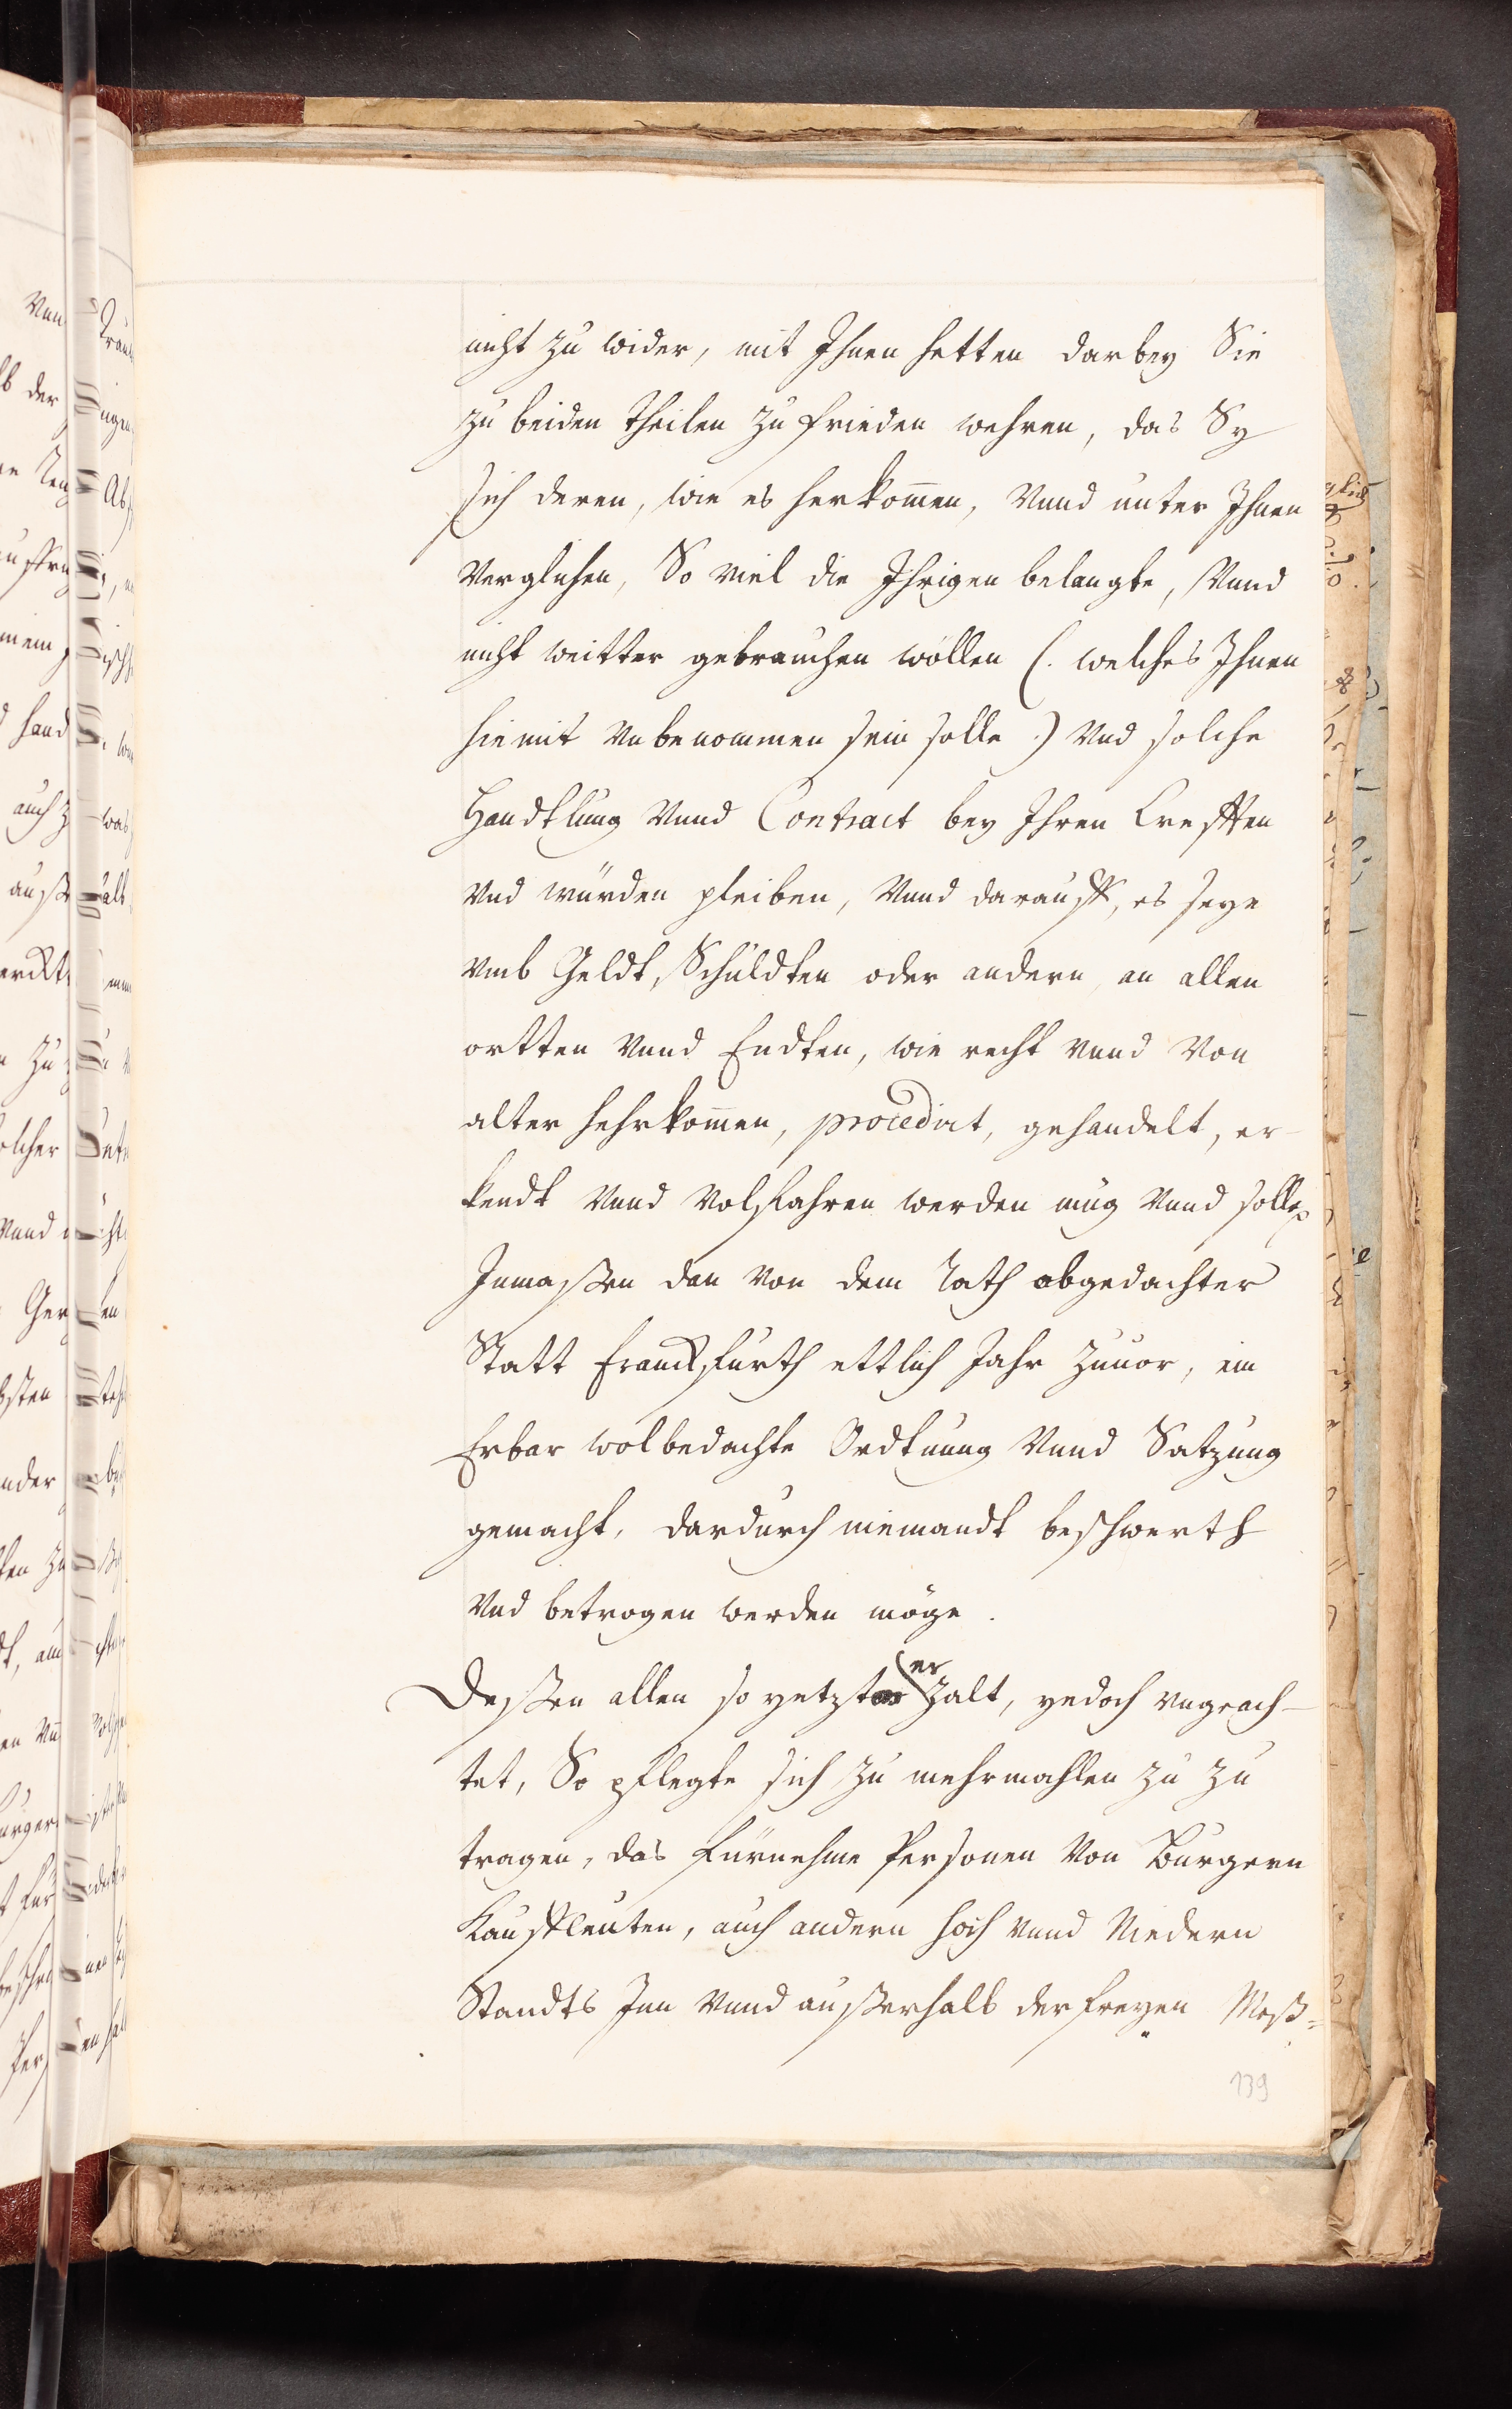 nicht zu wider, mit Ihnen hetten darbey Sie
zu beiden theilen zu frieden wehren, das Sy
sich deren, wie es herkom̄en, Vnnd unter Ihnen
Verglichen, So viel die Ihrigen belangte, Vnnd
nicht weitter gebrauchen wöllen (. welches Ihnen
hiemit Vnbenommen sein solle .) Vnd solche
Handtlung Vnnd Contract bey Ihren Crefften
Vnd würden pleiben, Vnnd darauff, es seye
Vmb Geldt, Schuldten oder andern, an allen
ortten Vnnd Endten, wie recht Vnnd Von
alter hehrkom̄en, procedirt, gehandelt, er-
kendt Vnnd Volfahren werden mug Vnnd solle
Inmassen dan Von dem Rath obgedachter
Statt Franckfurth ettlich Jahr zuuor, ein
Erbar wolbedachte Ordtnung Vnnd Satzung
gemacht, dardurch niemandt beschwerth
Vnd betrogen werden möge.
Dessen allen so yetzt erzalt, yedoch vngeach-
tet, So pflegte sich zu mehrmahlen zu zu
tragen, das fürnehme Personen Von Burgern
Kauffleuten, auch andern hoch Vnnd Niedern
Standts Inn Vnnd ausserhalb der freyen Meß=
139